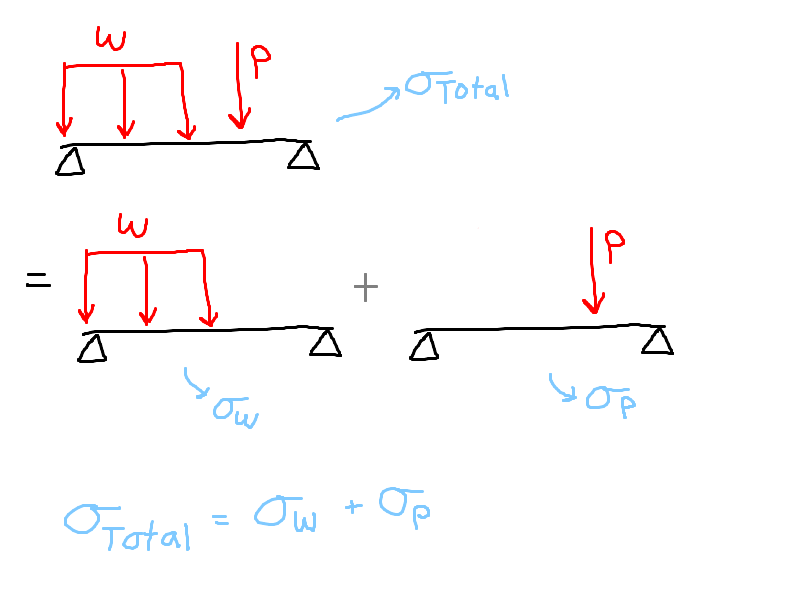 w
P
σTotal
w
P
=
+
σw
σP
σTotal = σw + σP